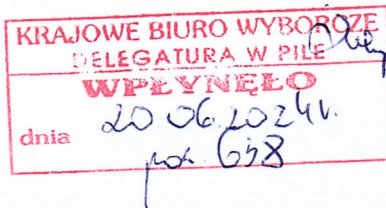 KRAJOWE BIURO WYBORCZE
DELEGATURA W PILE
WPŁYNĘŁO
dnia 20 06.2024r.
poz. 658